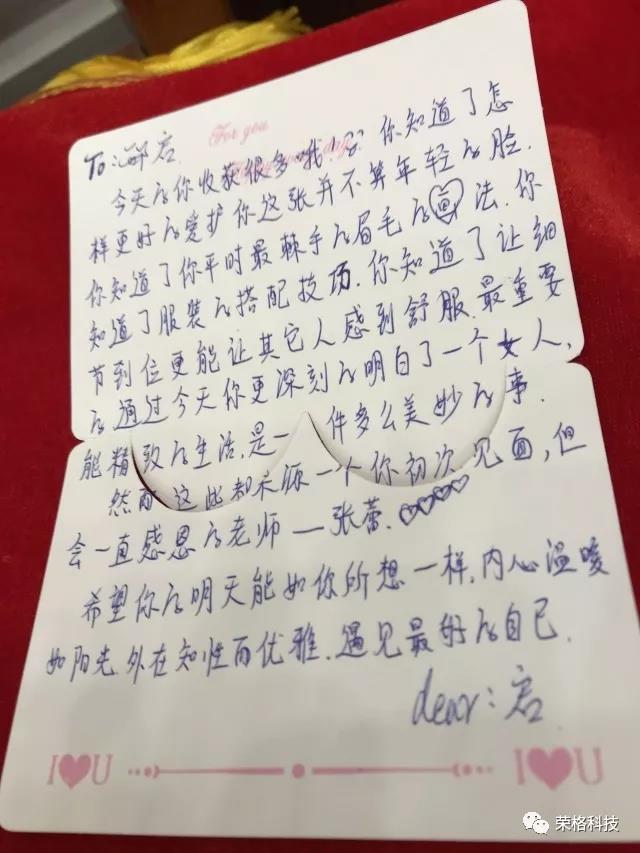 For you
To:邱君.
今天的你收获很多哦! 你知道了怎
样更好的爱护你这张并不算年轻的脸.
你知道了你平时最棘手的眉毛的画法.你
知道了服装的搭配技巧.你知道了让细
节到位更能让其它人感到舒服.最重要
的通过今天你更深刻的明白了一个女人,
能精致的生活.是一件多么美妙的事.
然而这些都来源一个你初次见面,但
会一直感恩的老师—张蕾.♡♡♡♡
希望你的明天能如你所想一样.内心温暖
如阳光.外在知性而优雅.遇见最好的自己.
dear:君
I♥U I♥U
荣格科技